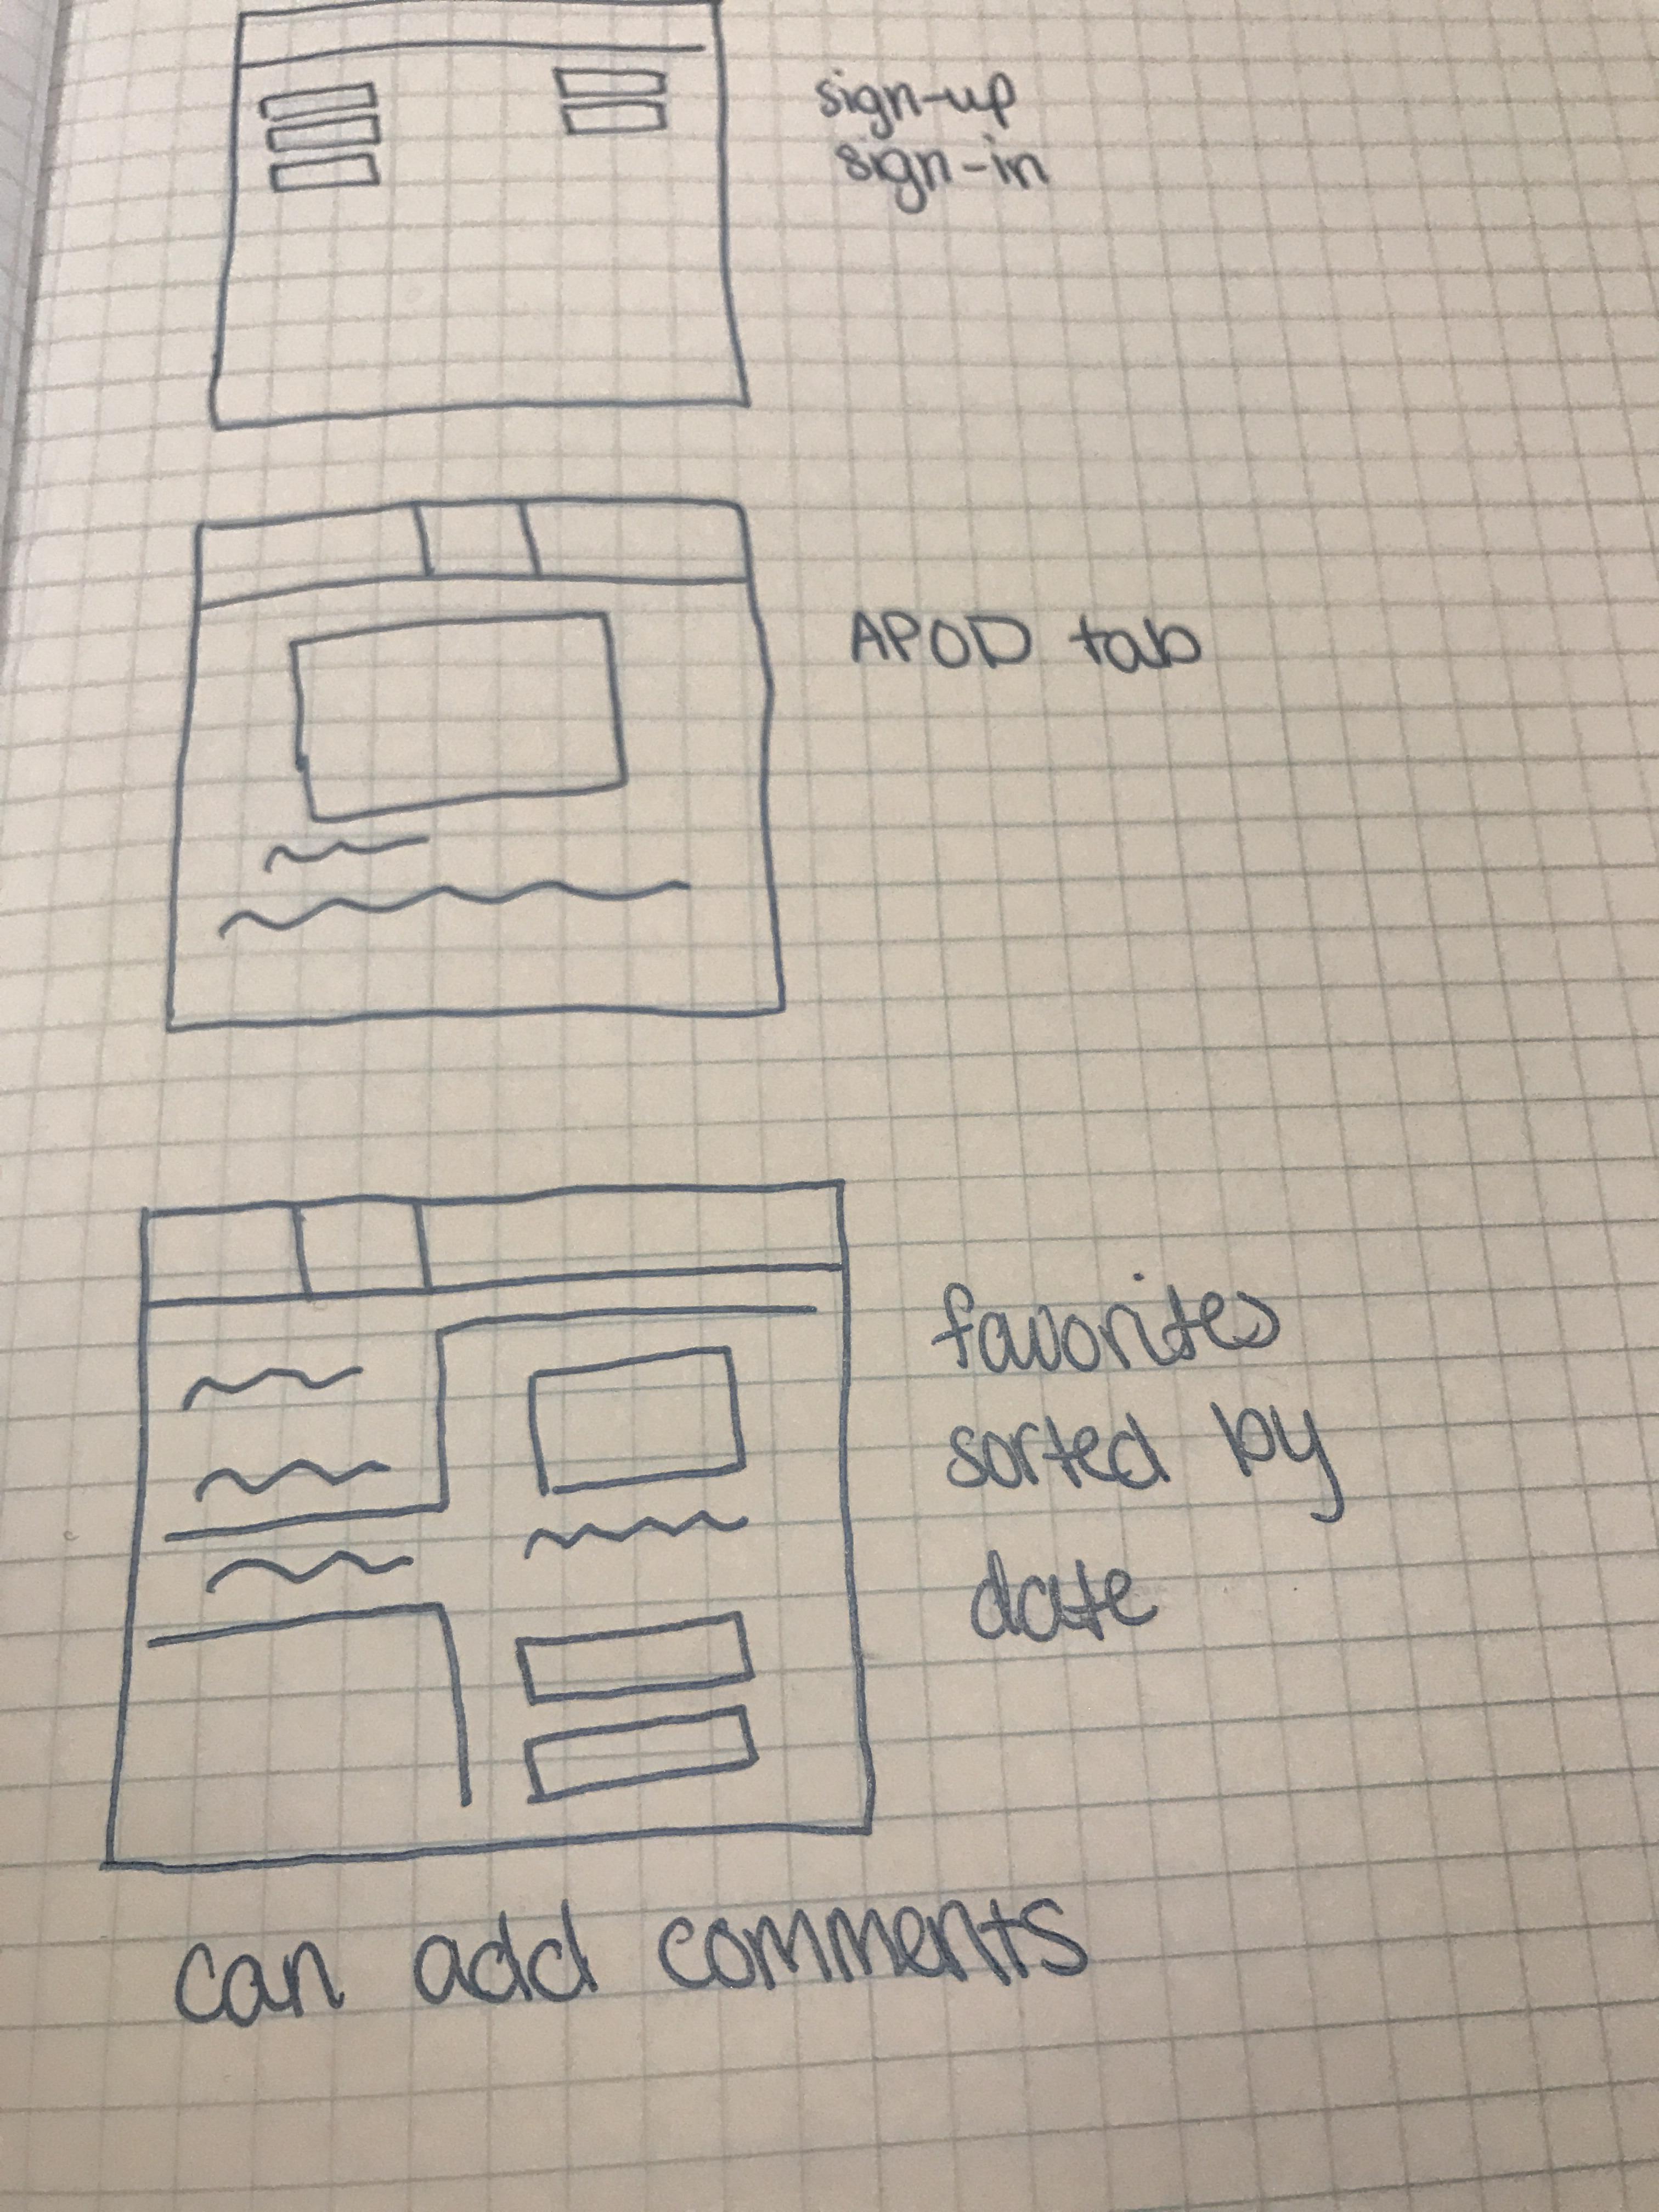 sign-up
sign-in
APOD tab
favorites
sorted by
date
can add comments